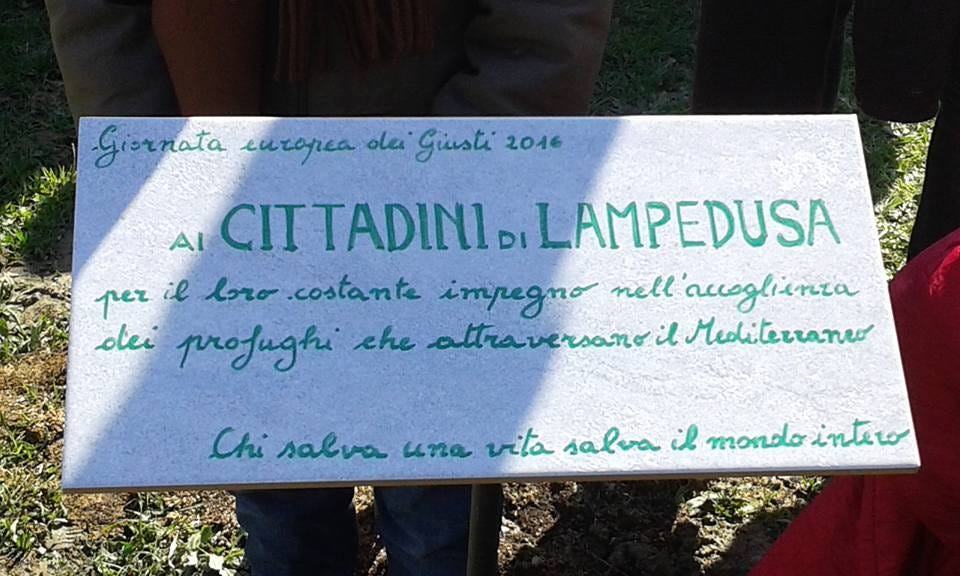 Giornata europea dei Giusti 2016
AI CITTADINI DI LAMPEDUSA
per il loro costante impegno nell'accoglienza
dei profughi che attraversano il Mediterraneo
Chi salva una vita salva il mondo intero